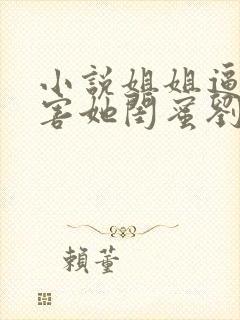 小說姐姐逼
害她閨蜜劉
賴董